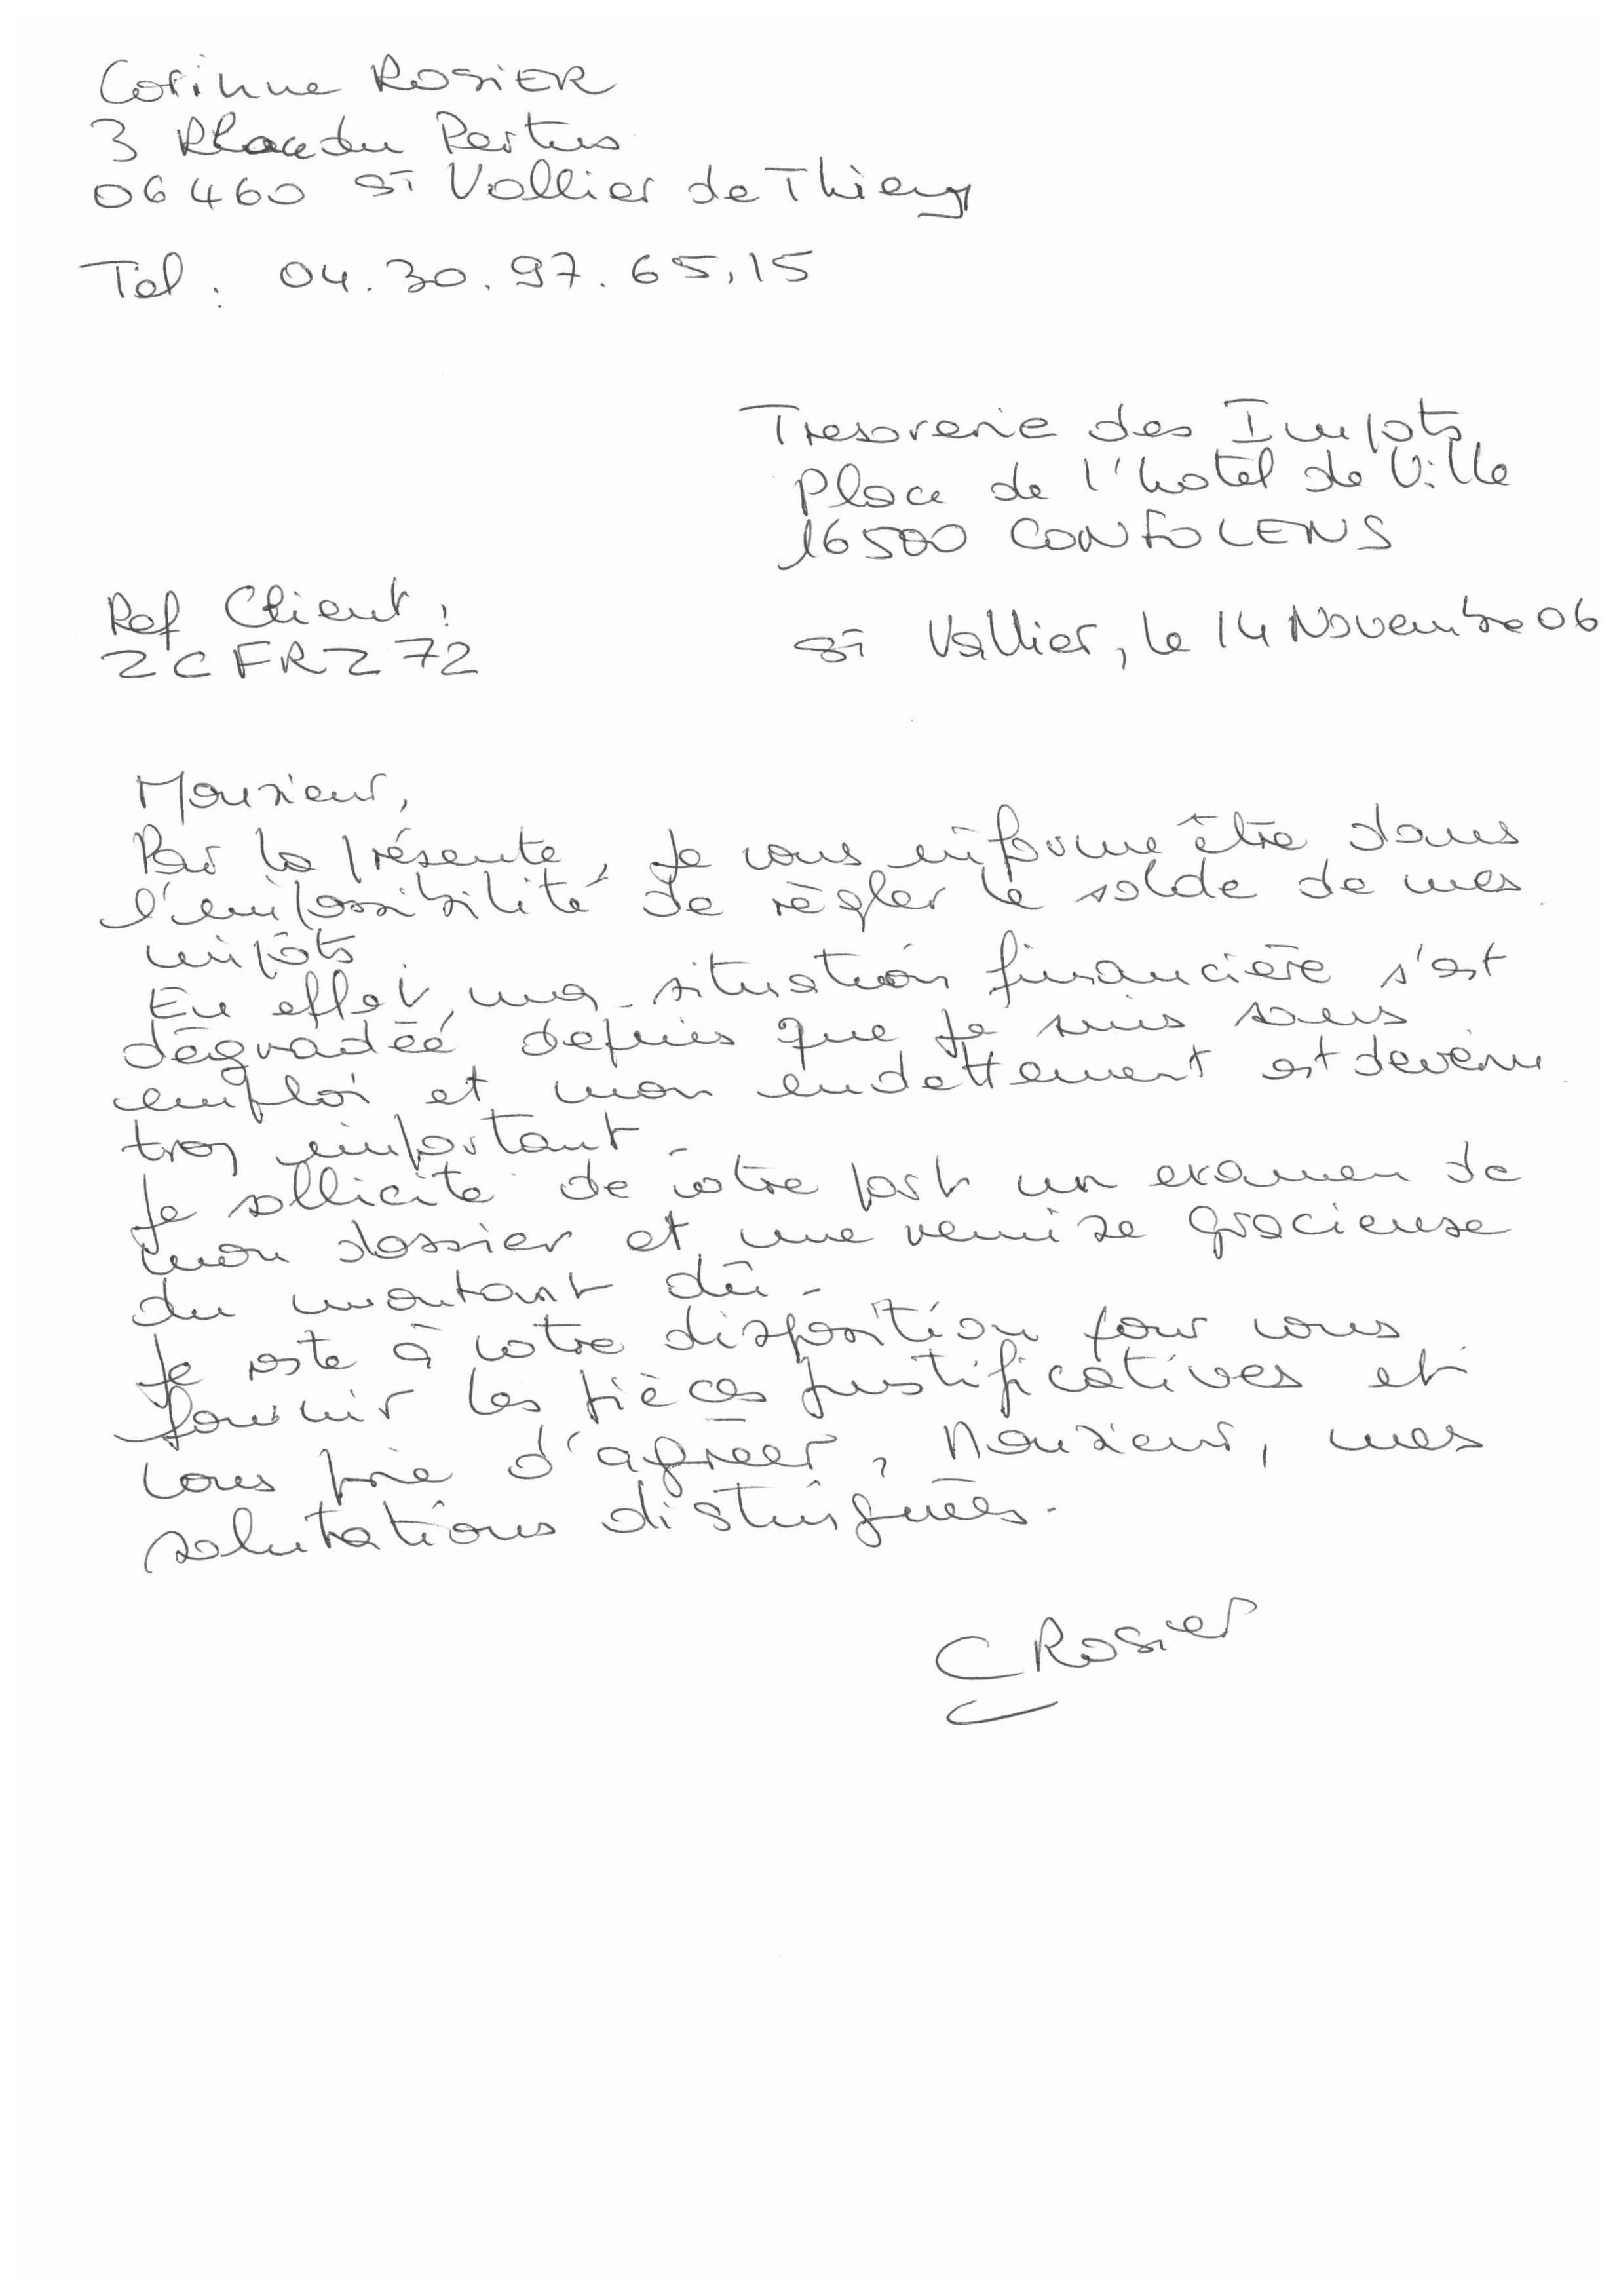 Corinne ROSIER
3 Place du Pertus
06460 St Vallier de Thiey
Tel : 04.30.97.65.15
Tresorerie des Impots
Place de l'hotel de Ville
16500 CONFOLENS
Ref Client :
ZCFRZ72
St Vallier, le 14 Novembre 06
Monsieur,
Par la présente, je vous informe être dans
l'impossibilité de règler le solde de mes
impôts.
En effet, ma situation financière s'est
dégradée depuis que je suis sans
emploi et mon endettement est devenu
trop important.
Je sollicite de votre part un examen de
mon dossier et une remise gracieuse
du montant dû.
Je reste à votre disposition pour vous
fournir les pièces justificatives et
vous prie d'agréer, Monsieur, mes
salutations distinguées.
C Rosier